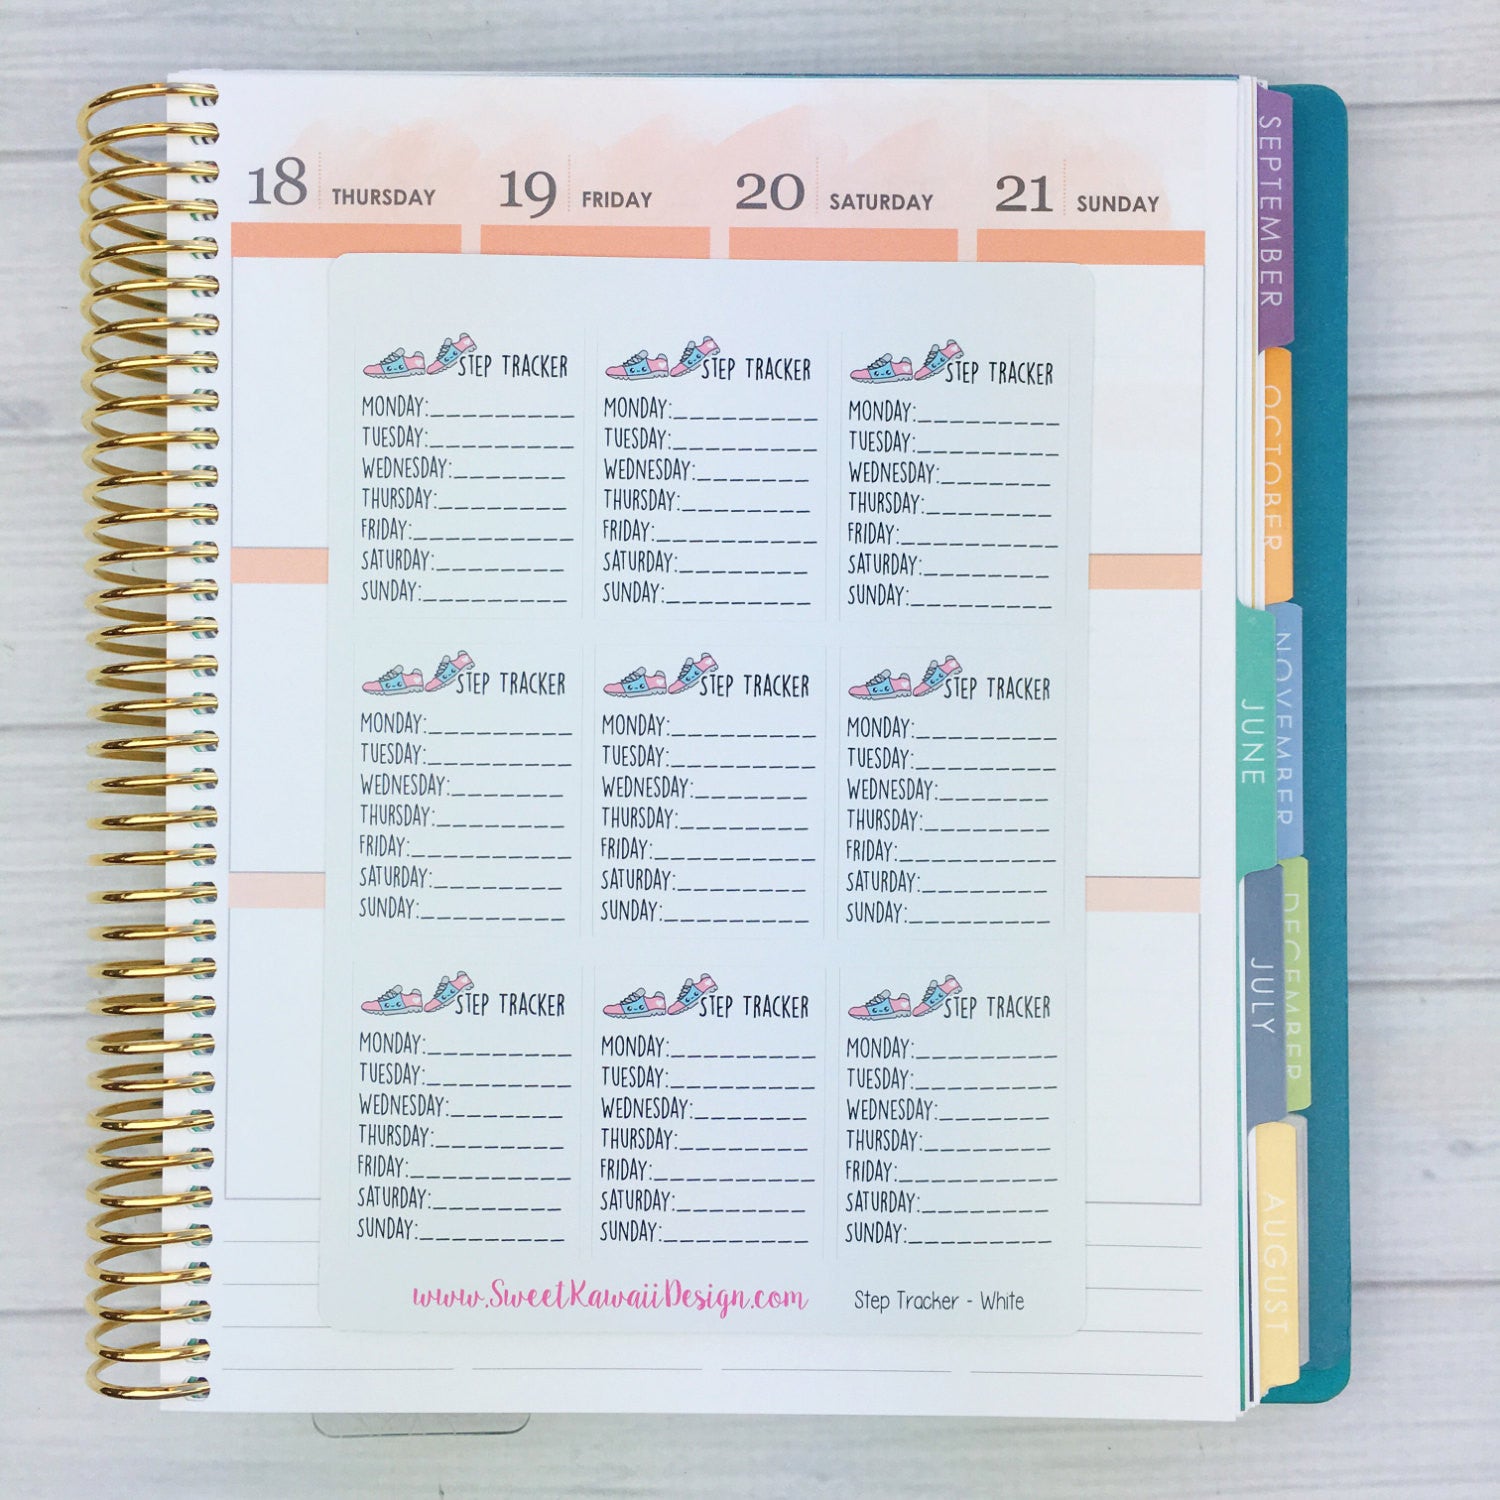 18 THURSDAY 19 FRIDAY 20 SATURDAY 21 SUNDAY
STEP TRACKER
MONDAY:_________
TUESDAY:_________
WEDNESDAY:_______
THURSDAY:________
FRIDAY:__________
SATURDAY:________
SUNDAY:_________
STEP TRACKER
MONDAY:_________
TUESDAY:_________
WEDNESDAY:_______
THURSDAY:________
FRIDAY:__________
SATURDAY:________
SUNDAY:_________
STEP TRACKER
MONDAY:_________
TUESDAY:_________
WEDNESDAY:_______
THURSDAY:________
FRIDAY:__________
SATURDAY:________
SUNDAY:_________
STEP TRACKER
MONDAY:_________
TUESDAY:_________
WEDNESDAY:_______
THURSDAY:________
FRIDAY:__________
SATURDAY:________
SUNDAY:_________
STEP TRACKER
MONDAY:_________
TUESDAY:_________
WEDNESDAY:_______
THURSDAY:________
FRIDAY:__________
SATURDAY:________
SUNDAY:_________
STEP TRACKER
MONDAY:_________
TUESDAY:_________
WEDNESDAY:_______
THURSDAY:________
FRIDAY:__________
SATURDAY:________
SUNDAY:_________
STEP TRACKER
MONDAY:_________
TUESDAY:_________
WEDNESDAY:_______
THURSDAY:________
FRIDAY:__________
SATURDAY:________
SUNDAY:_________
STEP TRACKER
MONDAY:_________
TUESDAY:_________
WEDNESDAY:_______
THURSDAY:________
FRIDAY:__________
SATURDAY:________
SUNDAY:_________
STEP TRACKER
MONDAY:_________
TUESDAY:_________
WEDNESDAY:_______
THURSDAY:________
FRIDAY:__________
SATURDAY:________
SUNDAY:_________
www.SweetKawaiiDesign.com
Step Tracker - White
SEPTEMBER
OCTOBER
NOVEMBER
JUNE
DECEMBER
JULY
AUGUST